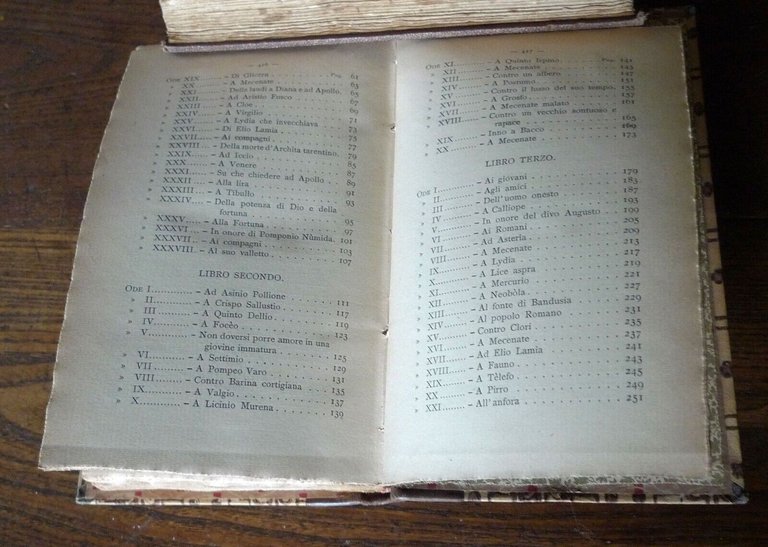 — 426 —
ODE XIX - Di Glicera . . . Pag. 61
» XX - A Mecenate . . . 63
» XXI - Delle laudi a Diana e ad Apollo. 65
» XXII - Ad Aristio Fusco . . . 67
» XXIII - A Cloe . . . 69
» XXIV - A Virgilio . . .
» XXV - A Lydia che invecchiava . . . 71
» XXVI - Di Elio Lamia . . . 73
» XXVII - Ai compagni . . . 75
» XXVIII - Della morte d'Archita tarentino. 77
» XXIX - Ad Iccio . . . 79
» XXX - A Venere . . . 85
» XXXI - Su che chiedere ad Apollo . . . 87
» XXXII - Alla lira . . . 89
» XXXIII - A Tibullo . . . 91
» XXXIV - Della potenza di Dio e della . . . 93
fortuna . . . 95
» XXXV - Alla Fortuna . . . 97
» XXXVI - In onore di Pomponio Nùmida. 101
» XXXVII - Ai compagni . . . 103
» XXXVIII. - Al suo valletto . . . 107
LIBRO SECONDO.
ODE I - Ad Asinio Pollione . . . 111
» II - A Crispo Sallustio . . . 117
» III - A Quinto Dellio . . . 119
» IV - A Focèo . . . 123
» V - Non doversi porre amore in una
giovine immatura . . . 125
» VI - A Settimio . . . 129
» VII - A Pompeo Varo . . . 131
» VIII - Contro Barina cortigiana . . . 135
» IX - A Valgio . . . 137
» X - A Licinio Murena . . . 139
— 427 —
ODE XI - A Quinto Irpino . . . Pag. 141
» XII - A Mecenate . . . 143
» XIII - Contro un albero . . . 147
» XIV - A Postumo . . . 151
» XV - Contro il lusso del suo tempo. 155
» XVI - A Grosfo . . . 157
» XVII - A Mecenate malato . . . 161
» XVIII - Contro un vecchio sontuoso e
rapace . . . 165
» XIX - Inno a Bacco . . . 169
» XX - A Mecenate . . . 173
LIBRO TERZO.
ODE I - Ai giòvani . . . 179
» II - Agli amici . . . 183
» III - Dell'uomo onesto . . . 187
» IV - A Calliope . . . 193
» V - In onore del divo Augusto . . . 199
» VI - Ai Romani . . . 205
» VII - Ad Asteria . . . 209
» VIII - A Mecenate . . . 213
» IX - A Lydia . . . 217
» X - A Lice aspra . . . 219
» XI - A Mercurio . . . 221
» XII - A Neobòla . . . 225
» XIII - Al fonte di Bandusia . . . 227
» XIV - Al popolo Romano . . . 229
» XV - Contro Clori . . . 231
» XVI - A Mecenate . . . 235
» XVII - Ad Elio Lamia . . . 237
» XVIII - A Fauno . . . 241
» XIX - A Tèlefo . . . 243
» XX - A Pirro . . . 245
» XXI - All'anfora . . . 249
251